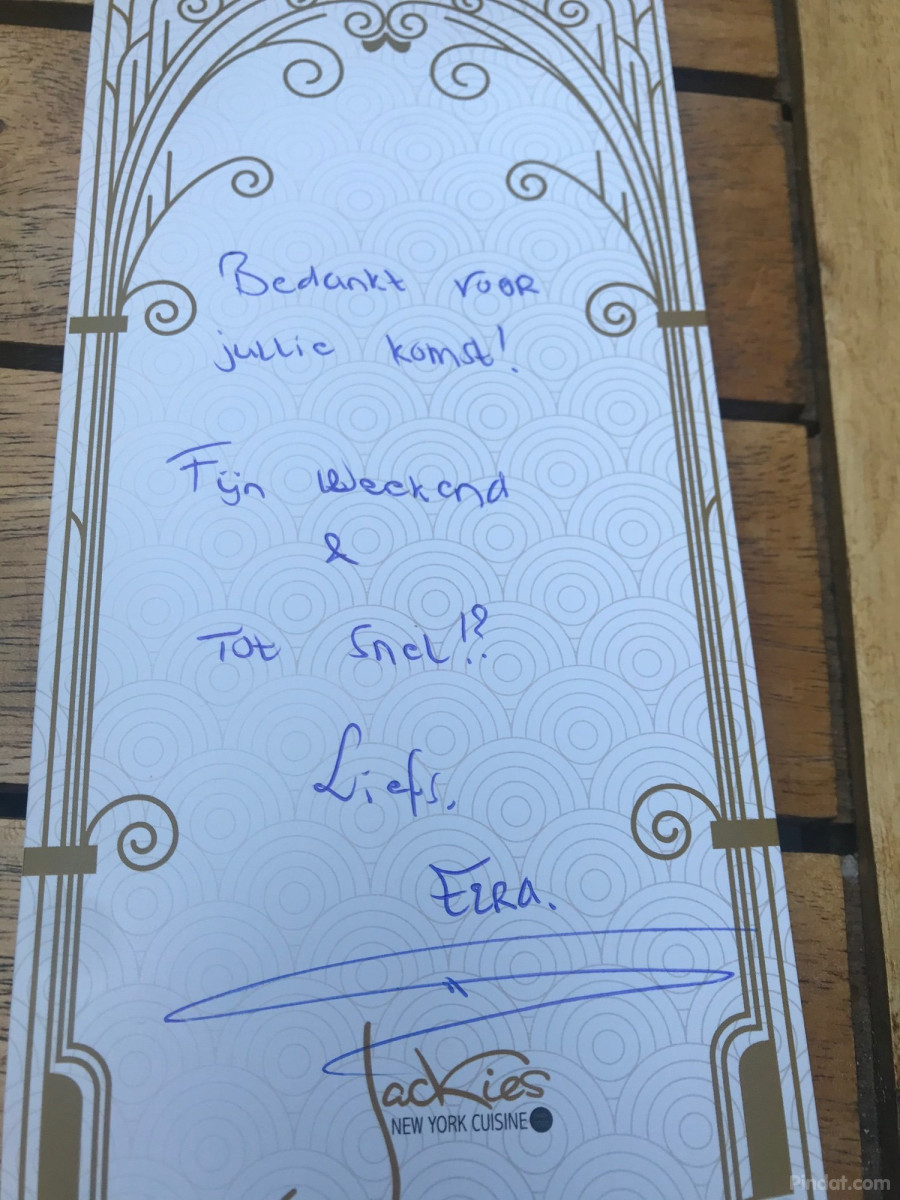 Bedankt voor
jullie komst!
Fijn weekend
&
Tot snel!?
Liefs,
Ezra.
Jackies
NEW YORK CUISINE
Pindat.com